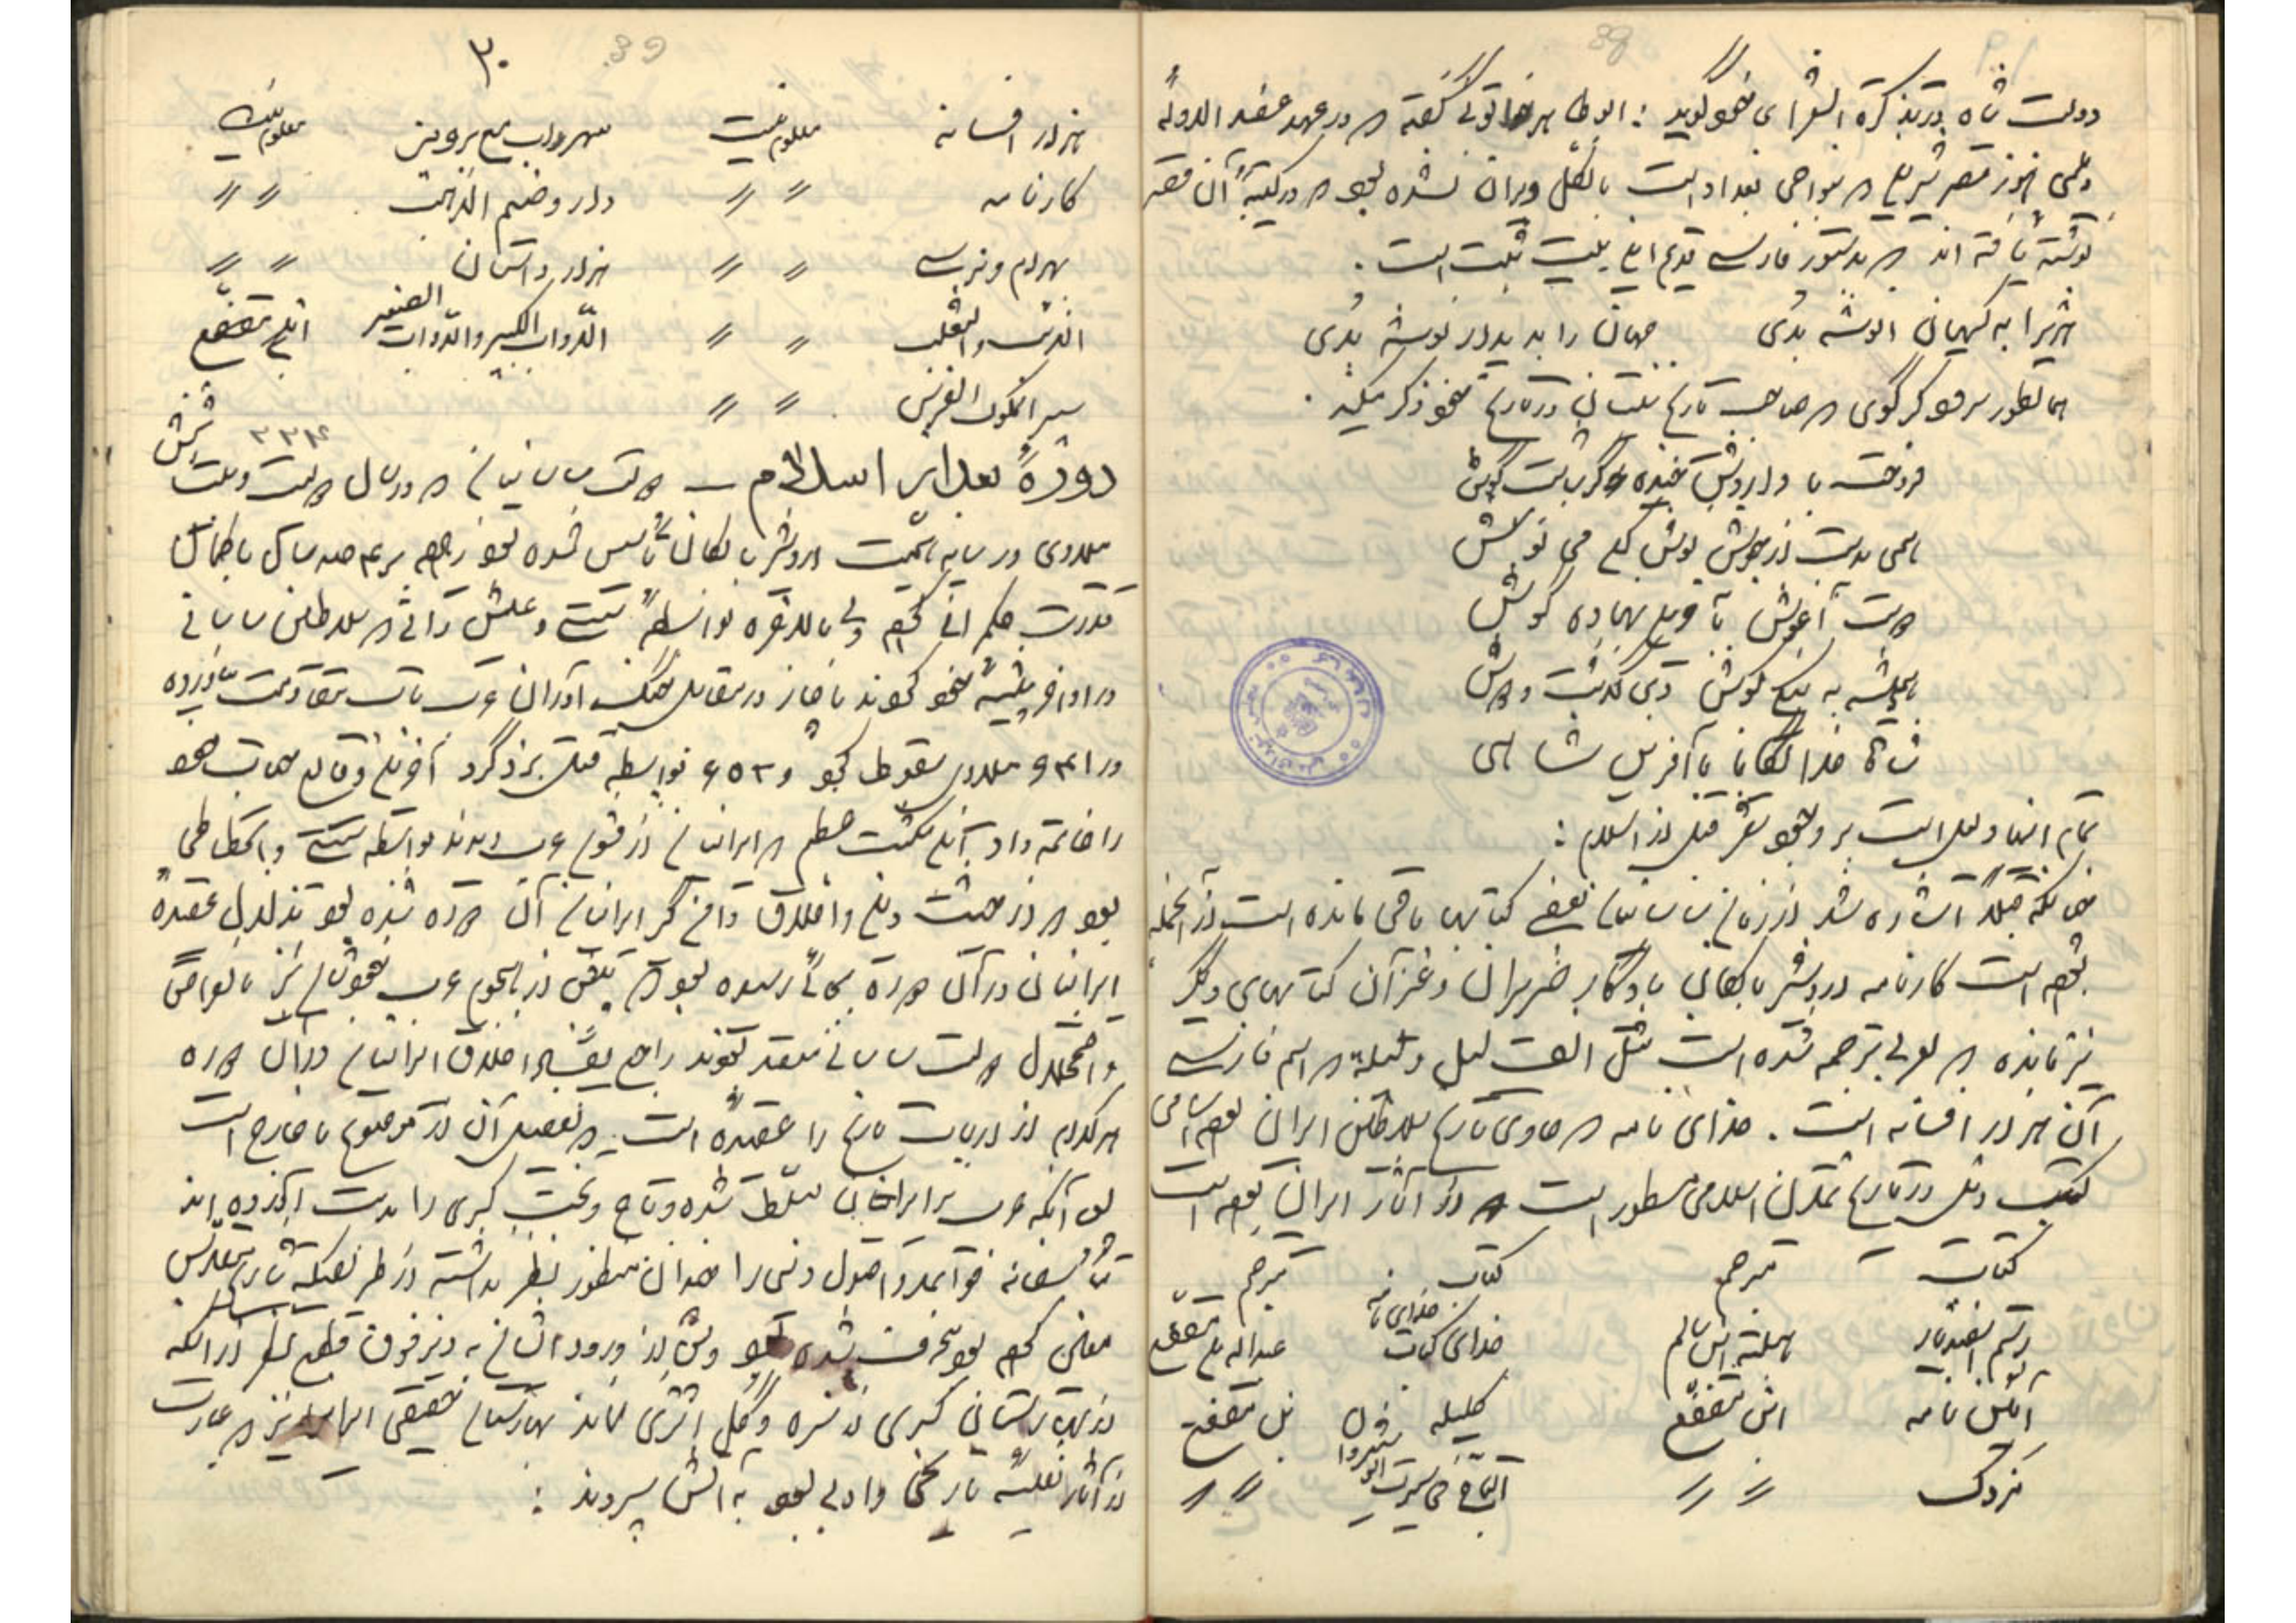 دولت شاه در تذکرة الشعرای خود گوید: ابوطاهر خاتونی گفته که در عهد عضدالدولهٔ
دیلمی هنوز قصر شیرین که بنواحی بغداد است بالکل ویران نشده بود که در کتیبهٔ آن قصر
نوشته یافته اند که بدستور فارسی قدیم این بیت ثبت است.
هژبرا به کیهان انوشه بدی جهان را به دیدار توشه بدی
همانطور سرود کرکوی که صاحب تاریخ سیستان در تاریخ خود ذکر میکند.
فروخته با دا روش خنیده گرشاسب هوش
همی برست از جوش نوش کن می نوش
دوست آغوش بآفرین نهاده گوش
همیشه نیکی کوش دی گذشت و دوش
شاها خدایگانا بآفرین شاهی
تمام اینها دلیل است بر وجود شعر قبل از اسلام:
چنانکه قبلاً اشاره شد از زمان ساسانیان بعضی کتابها باقی مانده است از آنجمله
بوده است کارنامه اردشیر بابکان یادگار ضریران و غیر آن کتابهای دیگر
نیز مانده که بعربی ترجمه شده است مثل الف لیل و لیلة که اسم فارسی
آن هزار افسانه است. خدای نامه که حاوی تاریخ سلاطین ایران بوده اسامی
کتب ذیل در تاریخ تمدن اسلامی مسطور است که از آثار ایران بوده است
کتاب مترجم کتاب مترجم
رستم و اسفندیار جبلة بن سالم خدای نامه عبداله بن مقفع
آئین نامه ابن مقفع کلیله و دمنه ابن مقفع
مزدک 〃 〃 التاج فی سیرت انوشیروان 〃 〃
۳۰
39
38
هزار افسانه معلوم نیست شهرزاد مع پرویز معلوم نیست
کارنامه 〃 〃 دارا و صنم الذهب 〃 〃
بهرام و نرسی 〃 〃 هزار داستان 〃 〃
الدب والثعلب 〃 〃 الدواب الکبیر والدواب الصغیر ابن مقفع
سیر الملوک الفرس 〃 〃
دورهٔ بعد از اسلام – دولت ساسانیان که در سال دویست و بیست و شش ۲۲۶
میلادی در سایه همت اردشیر بابکان تأسیس شده بود زهی چهار صد سال با کمال
قدرت حکمرانی کرد ولی بالاخره بواسطهٔ سستی و عیش رانی که سلاطین ساسانی
در اواخر پیشهٔ خود کردند بآغاز در مقابل جنگ آوران عرب تاب مقاومت نیاورده
در ۶۴۱ میلادی سقوط کرد و ۶۵۲ بواسطه قتل یزدگرد آخرین وقایع حیات خود
را خاتمه داد این شکست عظیم که ایرانیان از قشون عرب دیدند بواسطه سستی و انحطاطی
بود که از حیث دین و اخلاق دامن گیر ایرانیان آن دوره شده بود تزلزل عقیدهٔ
ایرانیان در آن دوره بجائی رسیده بود که بعضی از هجوم عرب خودشان نیز بانقراض
و اضمحلال دولت ساسانی معتقد بودند راجع بفساد اخلاق ایرانیان در آن دوره
هر کدام از ارباب تاریخ را عقیده است. که تفصیل آن از موضوع ما خارج است
بعد آنکه عرب بر ایرانیان مسلط شده و تاج و تخت کسری را بدست آوردند
متأسفانه قواعد و اصول دنیوی را چندان منظور نظر نداشته از طریقیکه شارع مقدس
معین کرده بود منحرف شده و پس از ورود ایشان به دیزفون قطع نظر از آنکه
از بهارستان کسری از سبزه و گل اثری نماند بهارستان حقیقی ایران نیز که عبارت
از آثار نفیسهٔ تاریخی و ادبی بود به آتش سپردند: